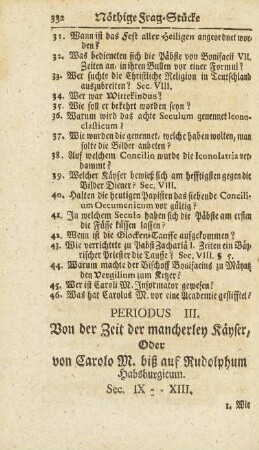 332 Nöthige Frag-Stücke
31. Wann ist das Fest aller Heiligen angeordnet wor-
den?
32. Was bedieneten sich die Päbste von Bonifacii VII.
Zeiten an, in ihren Bullen vor einer Formul?
33. Wer suchte die Christliche Religion in Teutschland
auszubreiten? Sec. VIII.
34. Wer war Wittekindus?
35. Wie soll er bekehrt worden seyn?
36. Warum wird das achte Seculum genennet Icono-
clasticum?
37. Wie wurden die genennet, welche haben wolten, man
solte die Bilder anbeten?
38. Auf welchem Concilio wurde die Iconolatria ver-
dammet?
39. Welcher Käyser bewieß sich am hefftigsten gegen die
Bilder-Diener? Sec. VIII.
40. Halten die heutigen Papisten das siebende Concili-
um Oecumenicum vor gültig?
41. In welchem Seculo haben sich die Päbste am ersten
die Füsse küssen lassen?
42. Wenn ist die Glocken-Tauffe aufgekommen?
43. Wie verrichtete zu Pabst Zachariä I. Zeiten ein Bäy-
rischer Priester die Tauffe? Sec. VIII. § 5.
44. Warum machte der Bischoff Bonifacius zu Mäyntz
den Vergilium zum Ketzer?
45. Wer ist Caroli M. Informator gewesen?
46. Was hat Carolus M. vor eine Academie gestifftet?
PERIODUS III.
Von der Zeit der mancherley Käyser,
Oder
von Carolo M. biß auf Rudolphum
Habsburgicum.
Sec. IX - XIII.
1. Wie